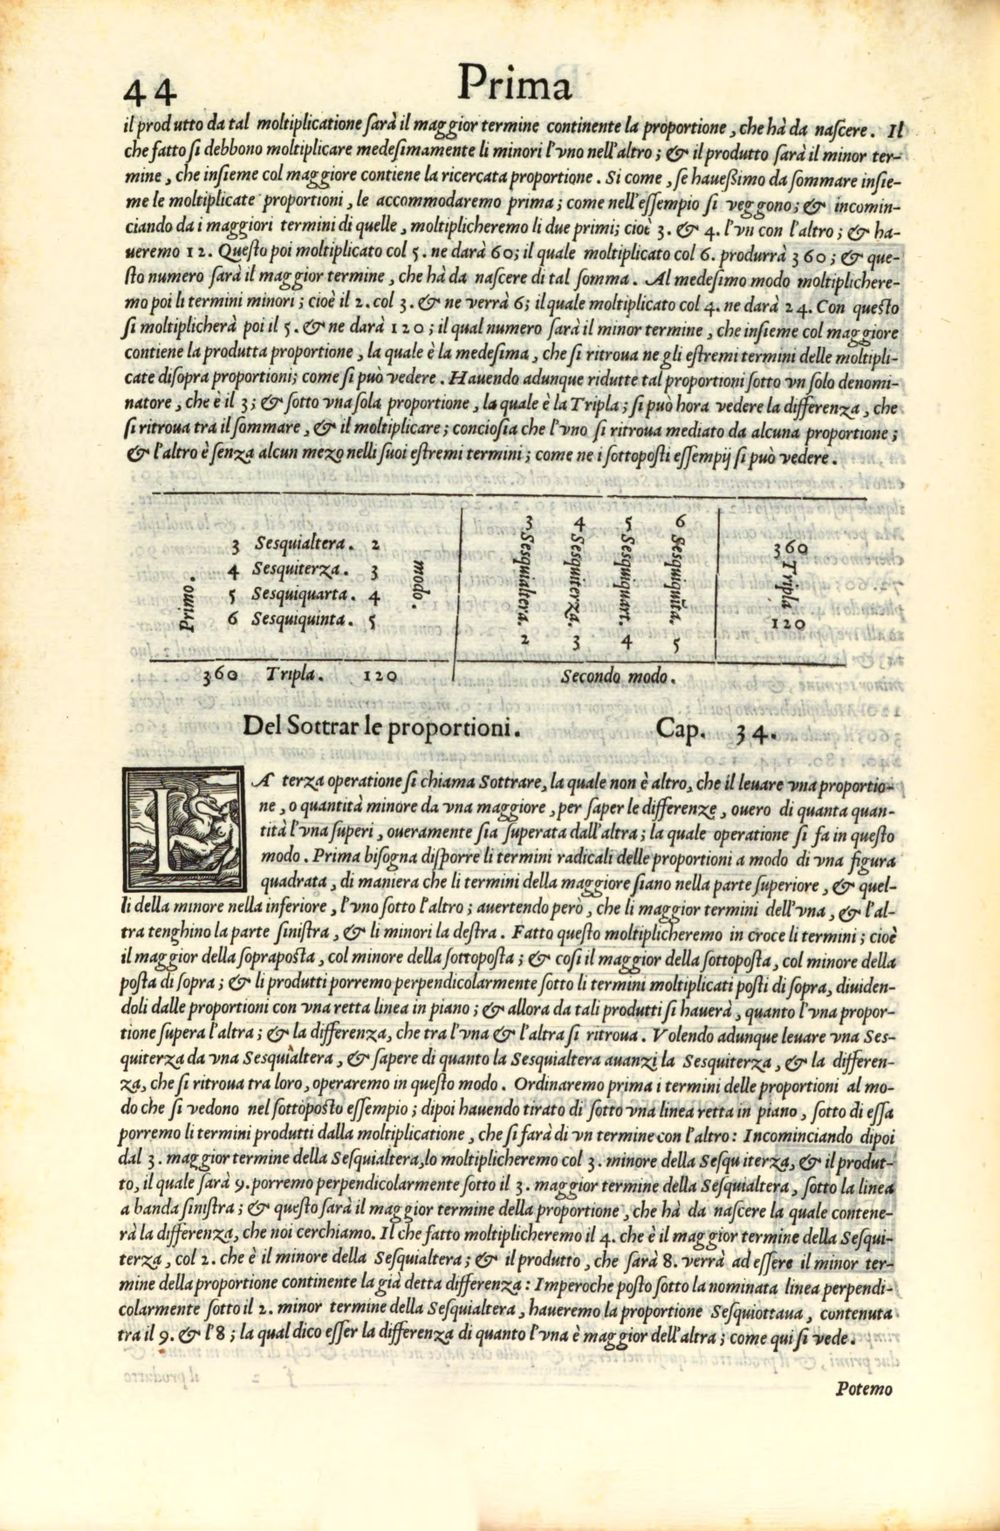 44 Prima
il produtto da tal moltiplicatione ſarà il maggior termine continente la proportione, che hà da naſcere. Il
che fatto ſi debbono moltiplicare medeſimamente li minori l'vno nell'altro; & il produtto ſarà il minor ter-
mine, che inſieme col maggiore contiene la ricercata proportione. Si come, ſe haueßimo da ſommare inſie-
me le moltiplicate proportioni, le accommodaremo prima; come nell'eſſempio ſi veggono; & incomin-
ciando da i maggiori termini di quelle, moltiplicheremo li due primi; cioè 3. & 4. l'vn con l'altro; & ha-
ueremo 12. Queſto poi moltiplicato col 5. ne darà 60; il quale moltiplicato col 6. produrrà 360; & que-
ſto numero ſarà il maggior termine, che hà da naſcere di tal ſomma. Al medeſimo modo moltiplichere-
mo poi li termini minori; cioè il 2. col 3. & ne verrà 6; il quale moltiplicato col 4. ne darà 24. Con queſto
ſi moltiplicherà poi il 5. & ne darà 120; il qual numero ſarà il minor termine, che inſieme col maggiore
contiene la produtta proportione, la quale è la medeſima, che ſi ritroua ne gli eſtremi termini delle moltipli-
cate diſopra proportioni; come ſi può vedere. Hauendo adunque ridutte tal proportioni ſotto vn ſolo denomi-
natore, che è il 3; & ſotto vna ſola proportione, la quale è la Tripla; ſi può hora vedere la differenza, che
ſi ritroua trà il ſommare, & il moltiplicare; concioſia che l'vno ſi ritroua mediato da alcuna proportione;
& l'altro è ſenza alcun mezo nelli ſuoi eſtremi termini; come ne i ſottopoſti eſſempij ſi può vedere.
Primo.
3 Sesquialtera. 2
4 Sesquiterza. 3
5 Sesquiquarta. 4
6 Sesquiquinta. 5
modo.
360 Tripla. 120
3 4 5 6
Sesquialtera. Sesquiterza. Sesquiquart. Sesquiquīta.
2 3 4 5
360
Tripla
120
Secondo modo.
Del Sottrar le proportioni. Cap. 34.
LA terza operatione ſi chiama Sottrare, la quale non è altro, che il leuare vna proportio-
ne, o quantità minore da vna maggiore, per ſaper le differenze, ouero di quanta quan-
tità l'vna ſuperi, oueramente ſia ſuperata dall'altra; la quale operatione ſi fa in queſto
modo. Prima biſogna diſporre li termini radicali delle proportioni a modo di vna figura
quadrata, di maniera che li termini della maggiore ſiano nella parte ſuperiore, & quel-
li della minore nella inferiore, l'vno ſotto l'altro; auertendo però, che li maggior termini dell'vna, & l'al-
tra tenghino la parte ſiniſtra, & li minori la deſtra. Fatto queſto moltiplicheremo in croce li termini; cioè
il maggior della ſoprapoſta, col minore della ſottopoſta; & coſi il maggior della ſottopoſta, col minore della
poſta di ſopra; & li produtti porremo perpendicolarmente ſotto li termini moltiplicati poſti di ſopra, diuiden-
doli dalle proportioni con vna retta linea in piano; & allora da tali produtti ſi hauerà, quanto l'vna propor-
tione ſupera l'altra; & la differenza, che tra l'vna & l'altra ſi ritroua. Volendo adunque leuare vna Ses-
quiterza da vna Sesquialtera, & ſapere di quanto la Sesquialtera auanzi la Sesquiterza, & la differen-
za, che ſi ritroua tra loro, operaremo in queſto modo. Ordinaremo prima i termini delle proportioni al mo-
do che ſi vedono nel ſottopoſto eſſempio; dipoi hauendo tirato di ſotto vna linea retta in piano, ſotto di eſſa
porremo li termini produtti dalla moltiplicatione, che ſi farà di vn termine con l'altro: Incominciando dipoi
dal 3. maggior termine della Seſquialtera, lo moltiplicheremo col 3. minore della Seſquiterza, & il produt-
to, il quale ſarà 9. porremo perpendicolarmente ſotto il 3. maggior termine della Seſquialtera, ſotto la linea
a banda ſiniſtra; & queſto ſarà il maggior termine della proportione, che hà da naſcere la quale contene-
rà la differenza, che noi cerchiamo. Il che fatto moltiplicheremo il 4. che è il maggior termine della Seſqui-
terza, col 2. che è il minore della Seſquialtera; & il produtto, che ſarà 8. verrà ad eſſere il minor ter-
mine della proportione continente la già detta differenza: Imperoche poſto ſotto la nominata linea perpendi-
colarmente ſotto il 2. minor termine della Seſquialtera, haueremo la proportione Seſquiottaua, contenuta
tra il 9. & l'8; la qual dico eſſer la differenza di quanto l'vna è maggior dell'altra; come qui ſi vede.
Potemo